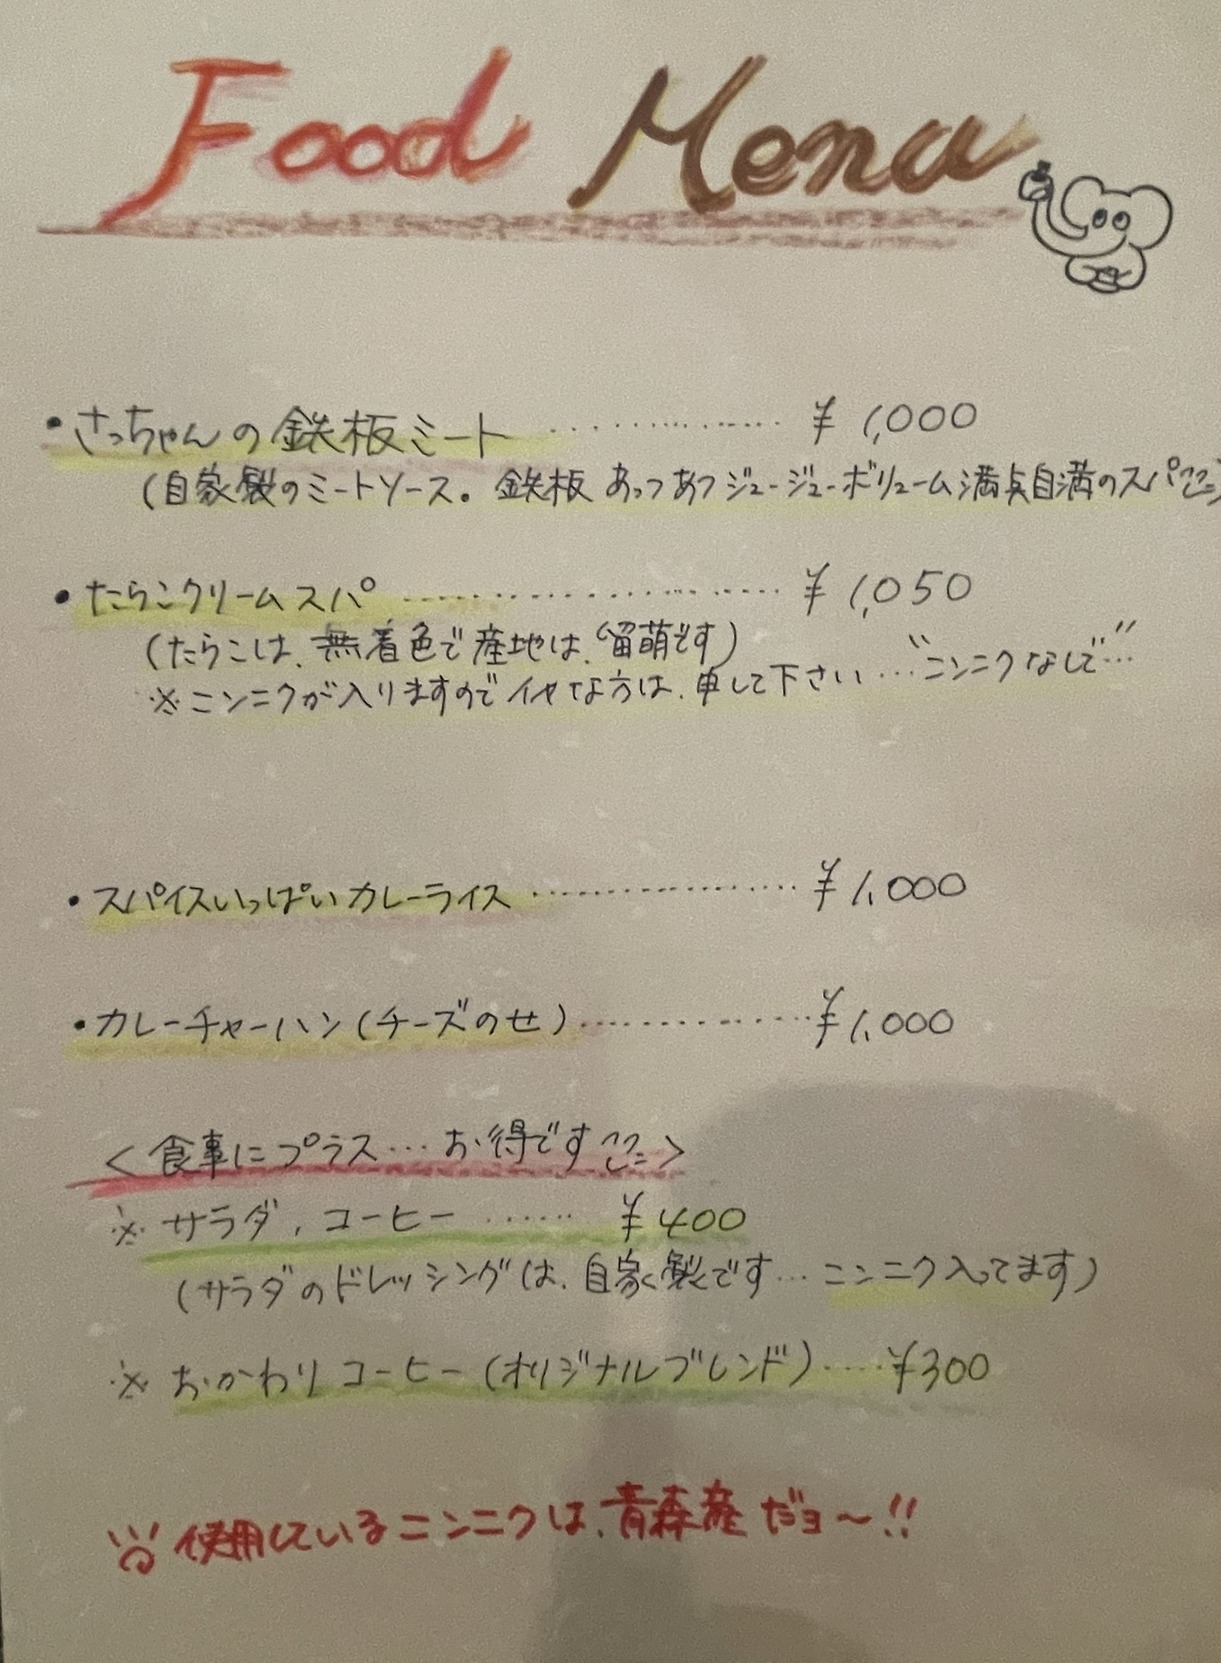 Food Menu
・さっちゃんの鉄板ミート ………… ¥1,000
(自家製のミートソース。鉄板あっつあつジュージューボリューム満点自満のスパ
・たらこクリームスパ ………… ¥1,050
(たらこは、無着色で産地は、留萌です)
※ニンニクが入りますのでイヤな方は、申して下さい…"ニンニクなしで…"
・スパイスいっぱいカレーライス ………… ¥1,000
・カレーチャーハン(チーズのせ) ………… ¥1,000
<食事にプラス…お得です>
※サラダ、コーヒー …… ¥400
(サラダのドレッシングは、自家製です…ニンニク入ってます)
※おかわりコーヒー(オリジナルブレンド)……¥300
使用しているニンニクは、青森産だヨ〜!!